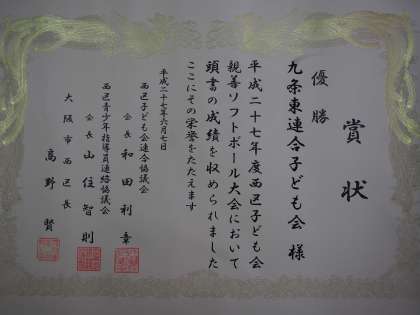 賞状
優勝
九条東連合子ども会 様
平成二十七年度西区子ども会
親善ソフトボール大会において
頭書の成績を収められました
ここにその栄誉をたたえます
平成二十七年六月七日
西区子ども会連合協議会
会長 和田利章
西区青少年指導員連絡協議会
会長 山住智則
大阪市西区長
高野賢